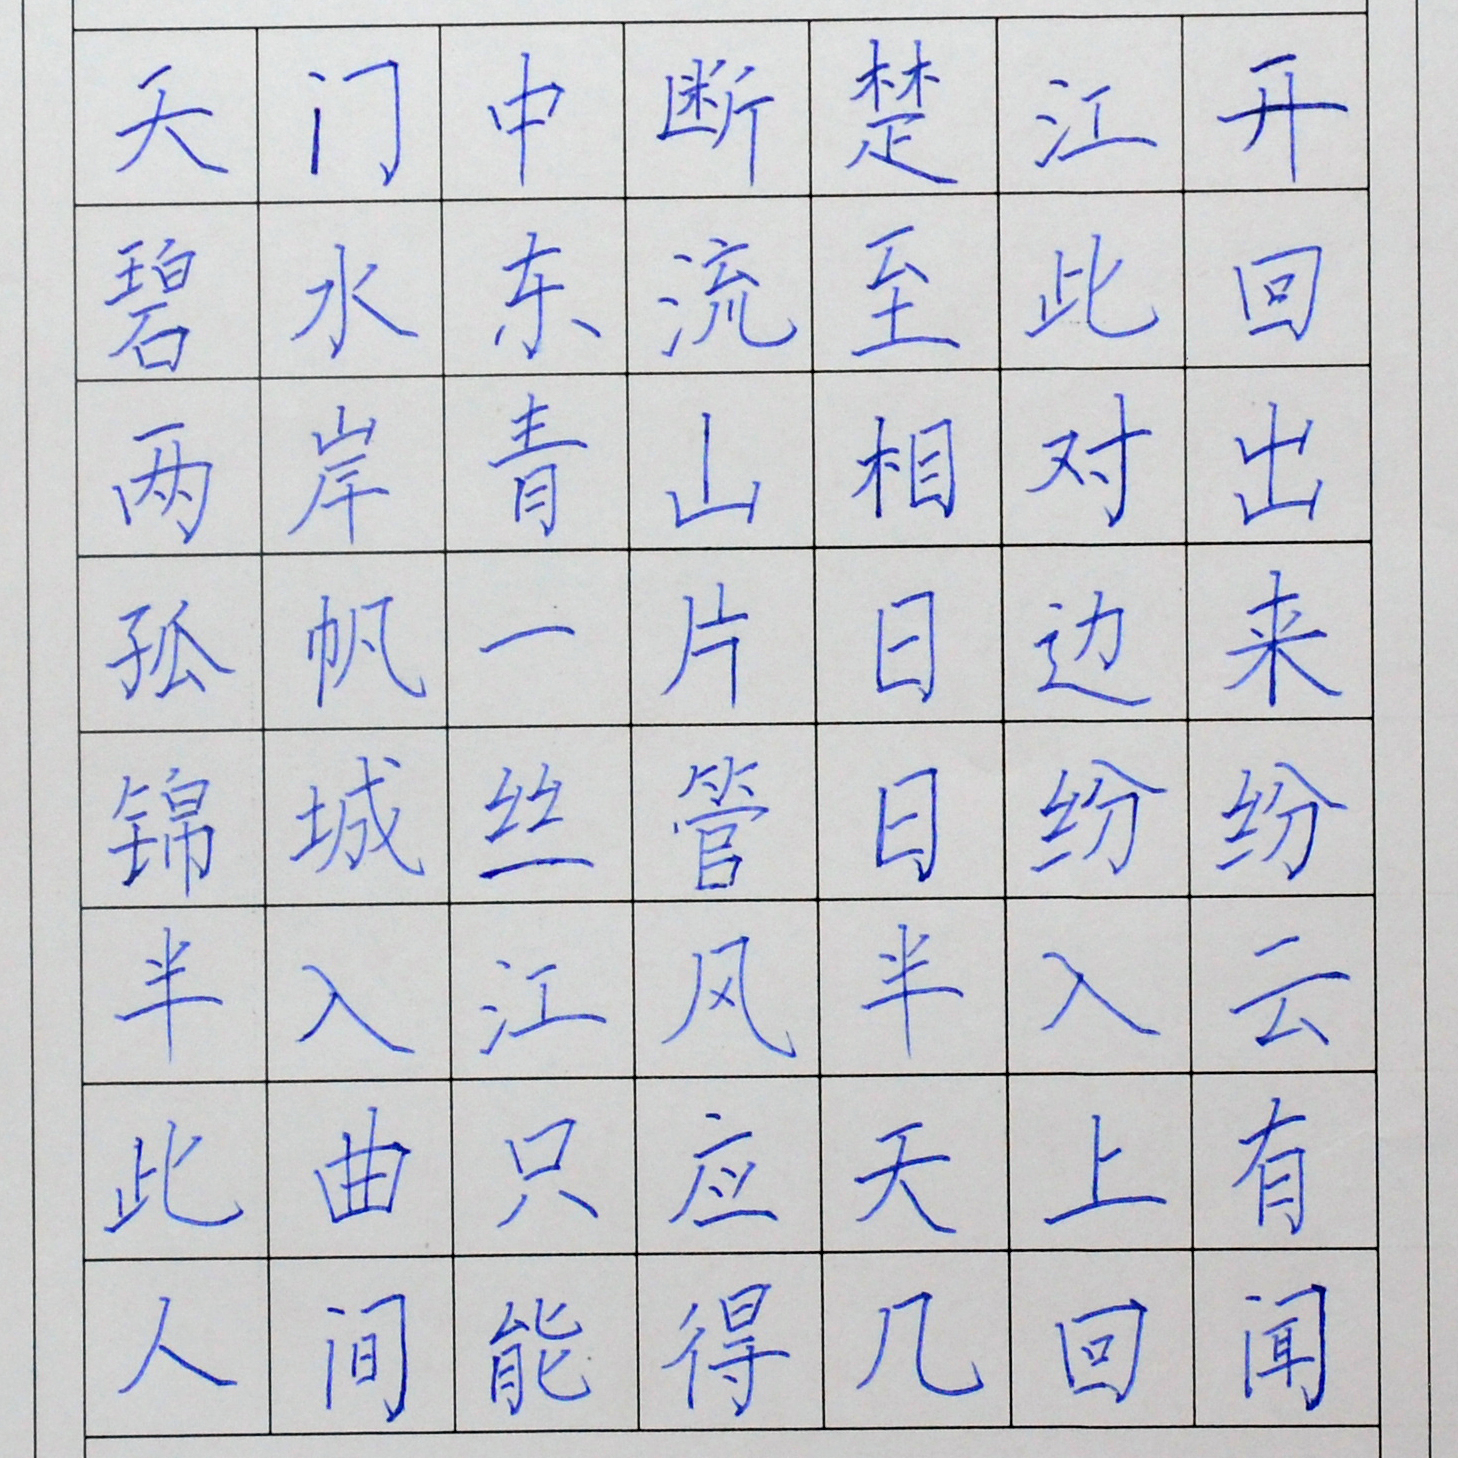 天门中断楚江开
碧水东流至此回
两岸青山相对出
孤帆一片日边来
锦城丝管日纷纷
半入江风半入云
此曲只应天上有
人间能得几回闻